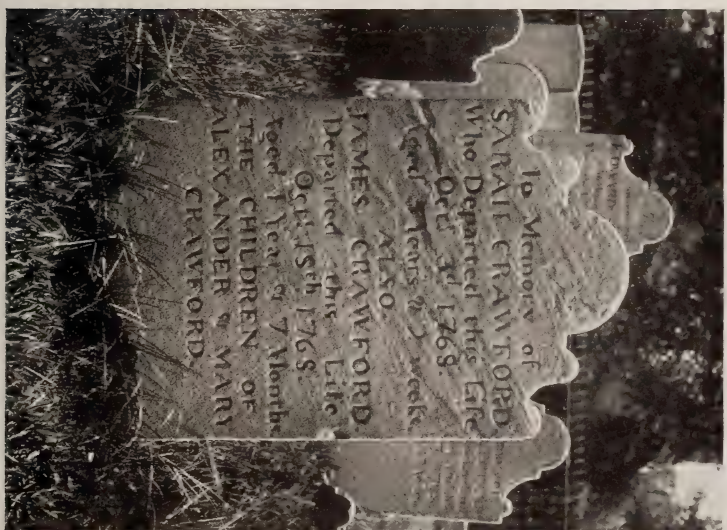 In Memory of
SARAH CRAWFORD
Who Departed this Life
Octr 3d 1768
Aged Years & 3 weeks
ALSO
JAMES CRAWFORD
Departed this Life
Octr 15th 1768
Aged 1 Year & 7 Months
THE CHILDREN OF
ALEXANDER & MARY
CRAWFORD